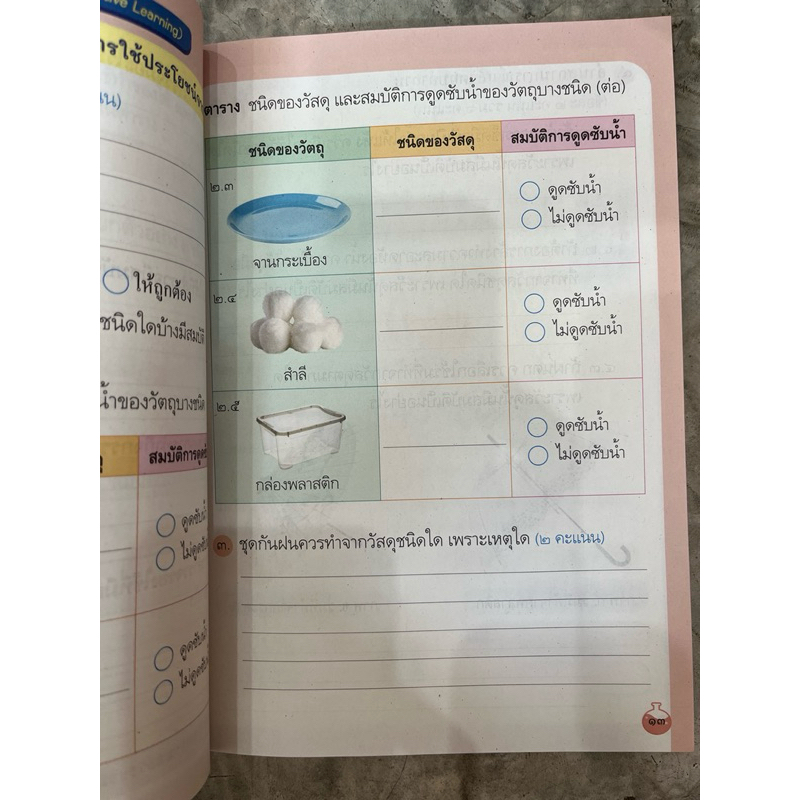 ve Learning)
ารใช้ประโยชน์
นน)
ให้ถูกต้อง
ชนิดใดบ้างมีสมบัติ
น้ำของวัตถุบางชนิด
สมบัติการดูดซับ
ดูดซับน้ำ
ไม่ดูดซับ
ดูดซับน้ำ
ไม่ดูดซับ
ตาราง ชนิดของวัสดุ และสมบัติการดูดซับน้ำของวัตถุบางชนิด (ต่อ)
ชนิดของวัตถุ ชนิดของวัสดุ สมบัติการดูดซับน้ำ
๒.๓
ดูดซับน้ำ
ไม่ดูดซับน้ำ
จานกระเบื้อง
๒.๔
ดูดซับน้ำ
ไม่ดูดซับน้ำ
สำลี
๒.๕
ดูดซับน้ำ
ไม่ดูดซับน้ำ
กล่องพลาสติก
๓. ชุดกันฝนควรทำจากวัสดุชนิดใด เพราะเหตุใด (๒ คะแนน)
๑๓